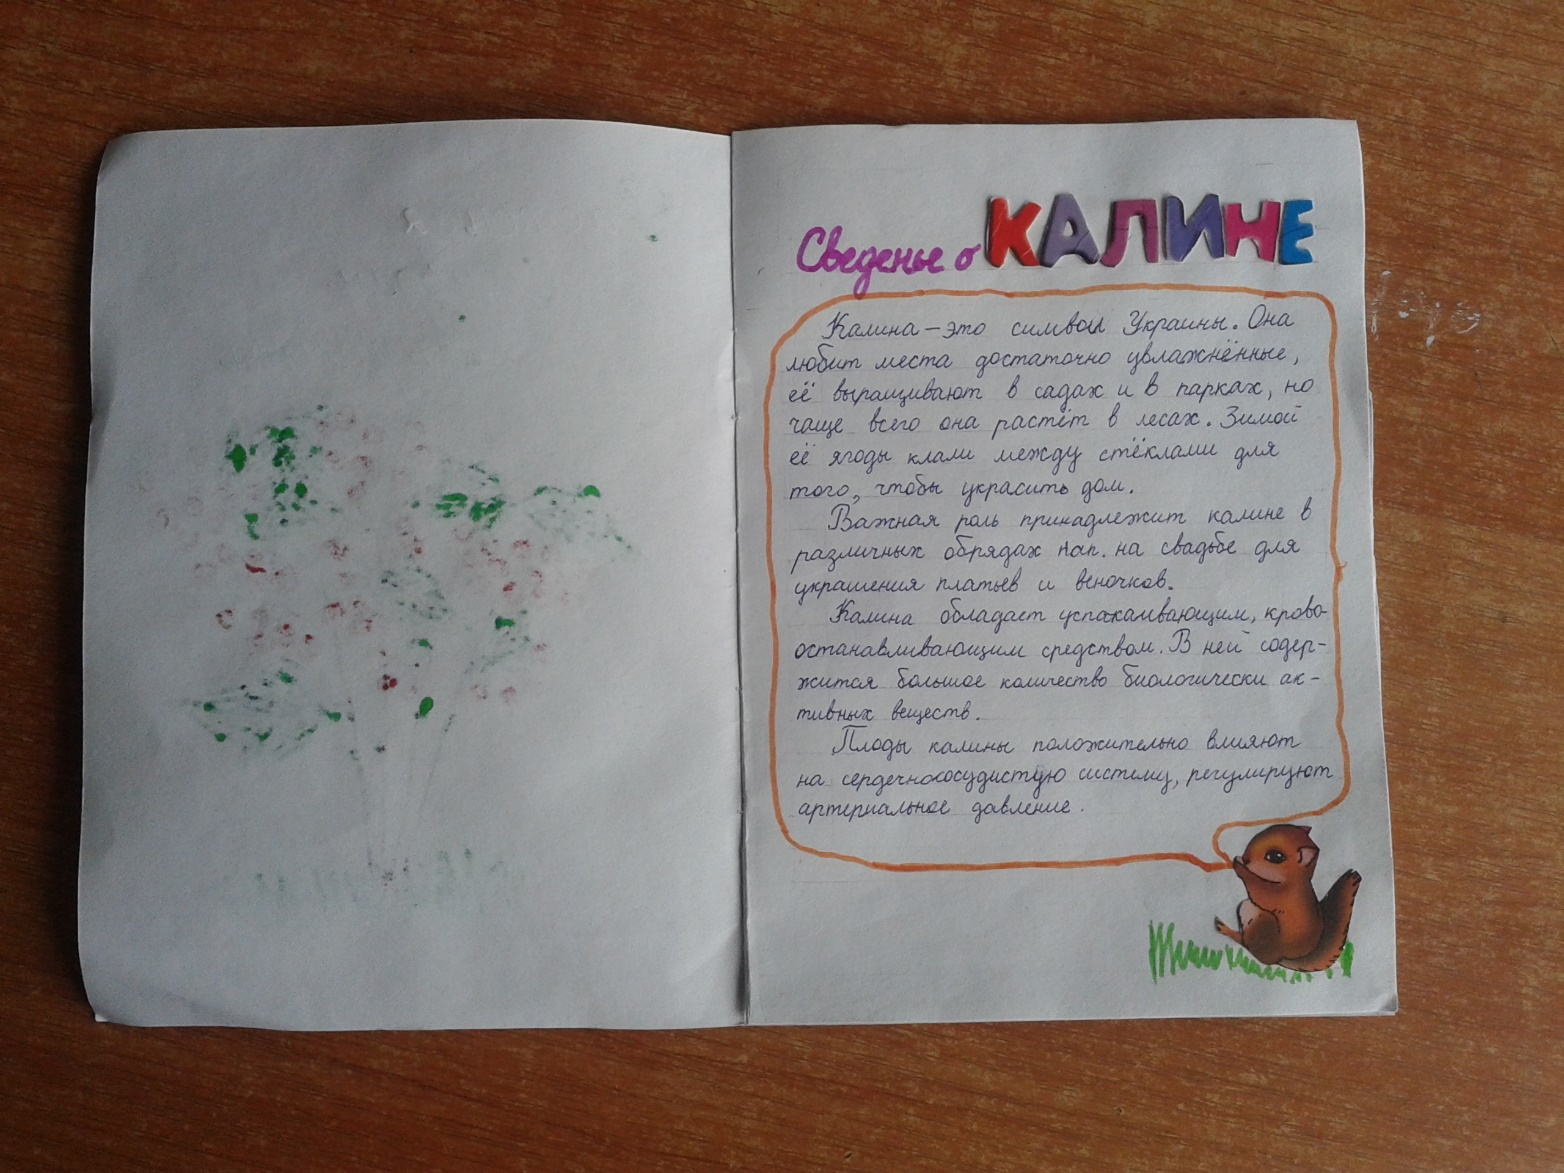 Сведенье о КАЛИНЕ
Калина – это символ Украины. Она
любит места достаточно увлажнённые,
её выращивают в садах и в парках, но
чаще всего она растёт в лесах. Зимой
её ягоды клали между стёклами для
того, чтобы украсить дом.
Важная роль принадлежит калине в
различных обрядах нап. на свадьбе для
украшения платьев и веночков.
Калина обладает успакаивающим, крово-
останавливающим средством. В ней содер-
жится большое количество биологически ак-
тивных веществ.
Плоды калины положительно влияют
на сердечнососудистую систему, регулируют
артериальное давление.